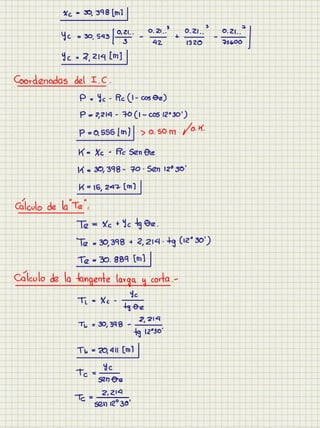 Xc = 30,398 [m]
Yc = 30,543 [0.21../3 - 0.21..³/42 + 0.21..⁵/1320 - 0.21..⁷/75600]
Yc = 2,214 [m]
Coordenadas del I.C.
P = Yc - Rc (1 - cos θe)
P = 2,214 - 70 (1 - cos 12°30')
P = 0,556 [m] > 0.50 m ✓ O.K.
K = Xc - Rc Sen θe
K = 30,398 - 70 · Sen 12°30'
K = 16,247 [m]
Cálculo de la "Te".
Te = Xc + Yc tg θe.
Te = 30,398 + 2,214 · tg (12°30')
Te = 30.889 [m]
Cálculo de la tangente larga y corta.-
TL = Xc - Yc/tg θe
TL = 30,398 - 2,214/tg 12°30'
TL = 20,411 [m]
Tc = Yc/sen θe
Tc = 2,214/sen 12°30'